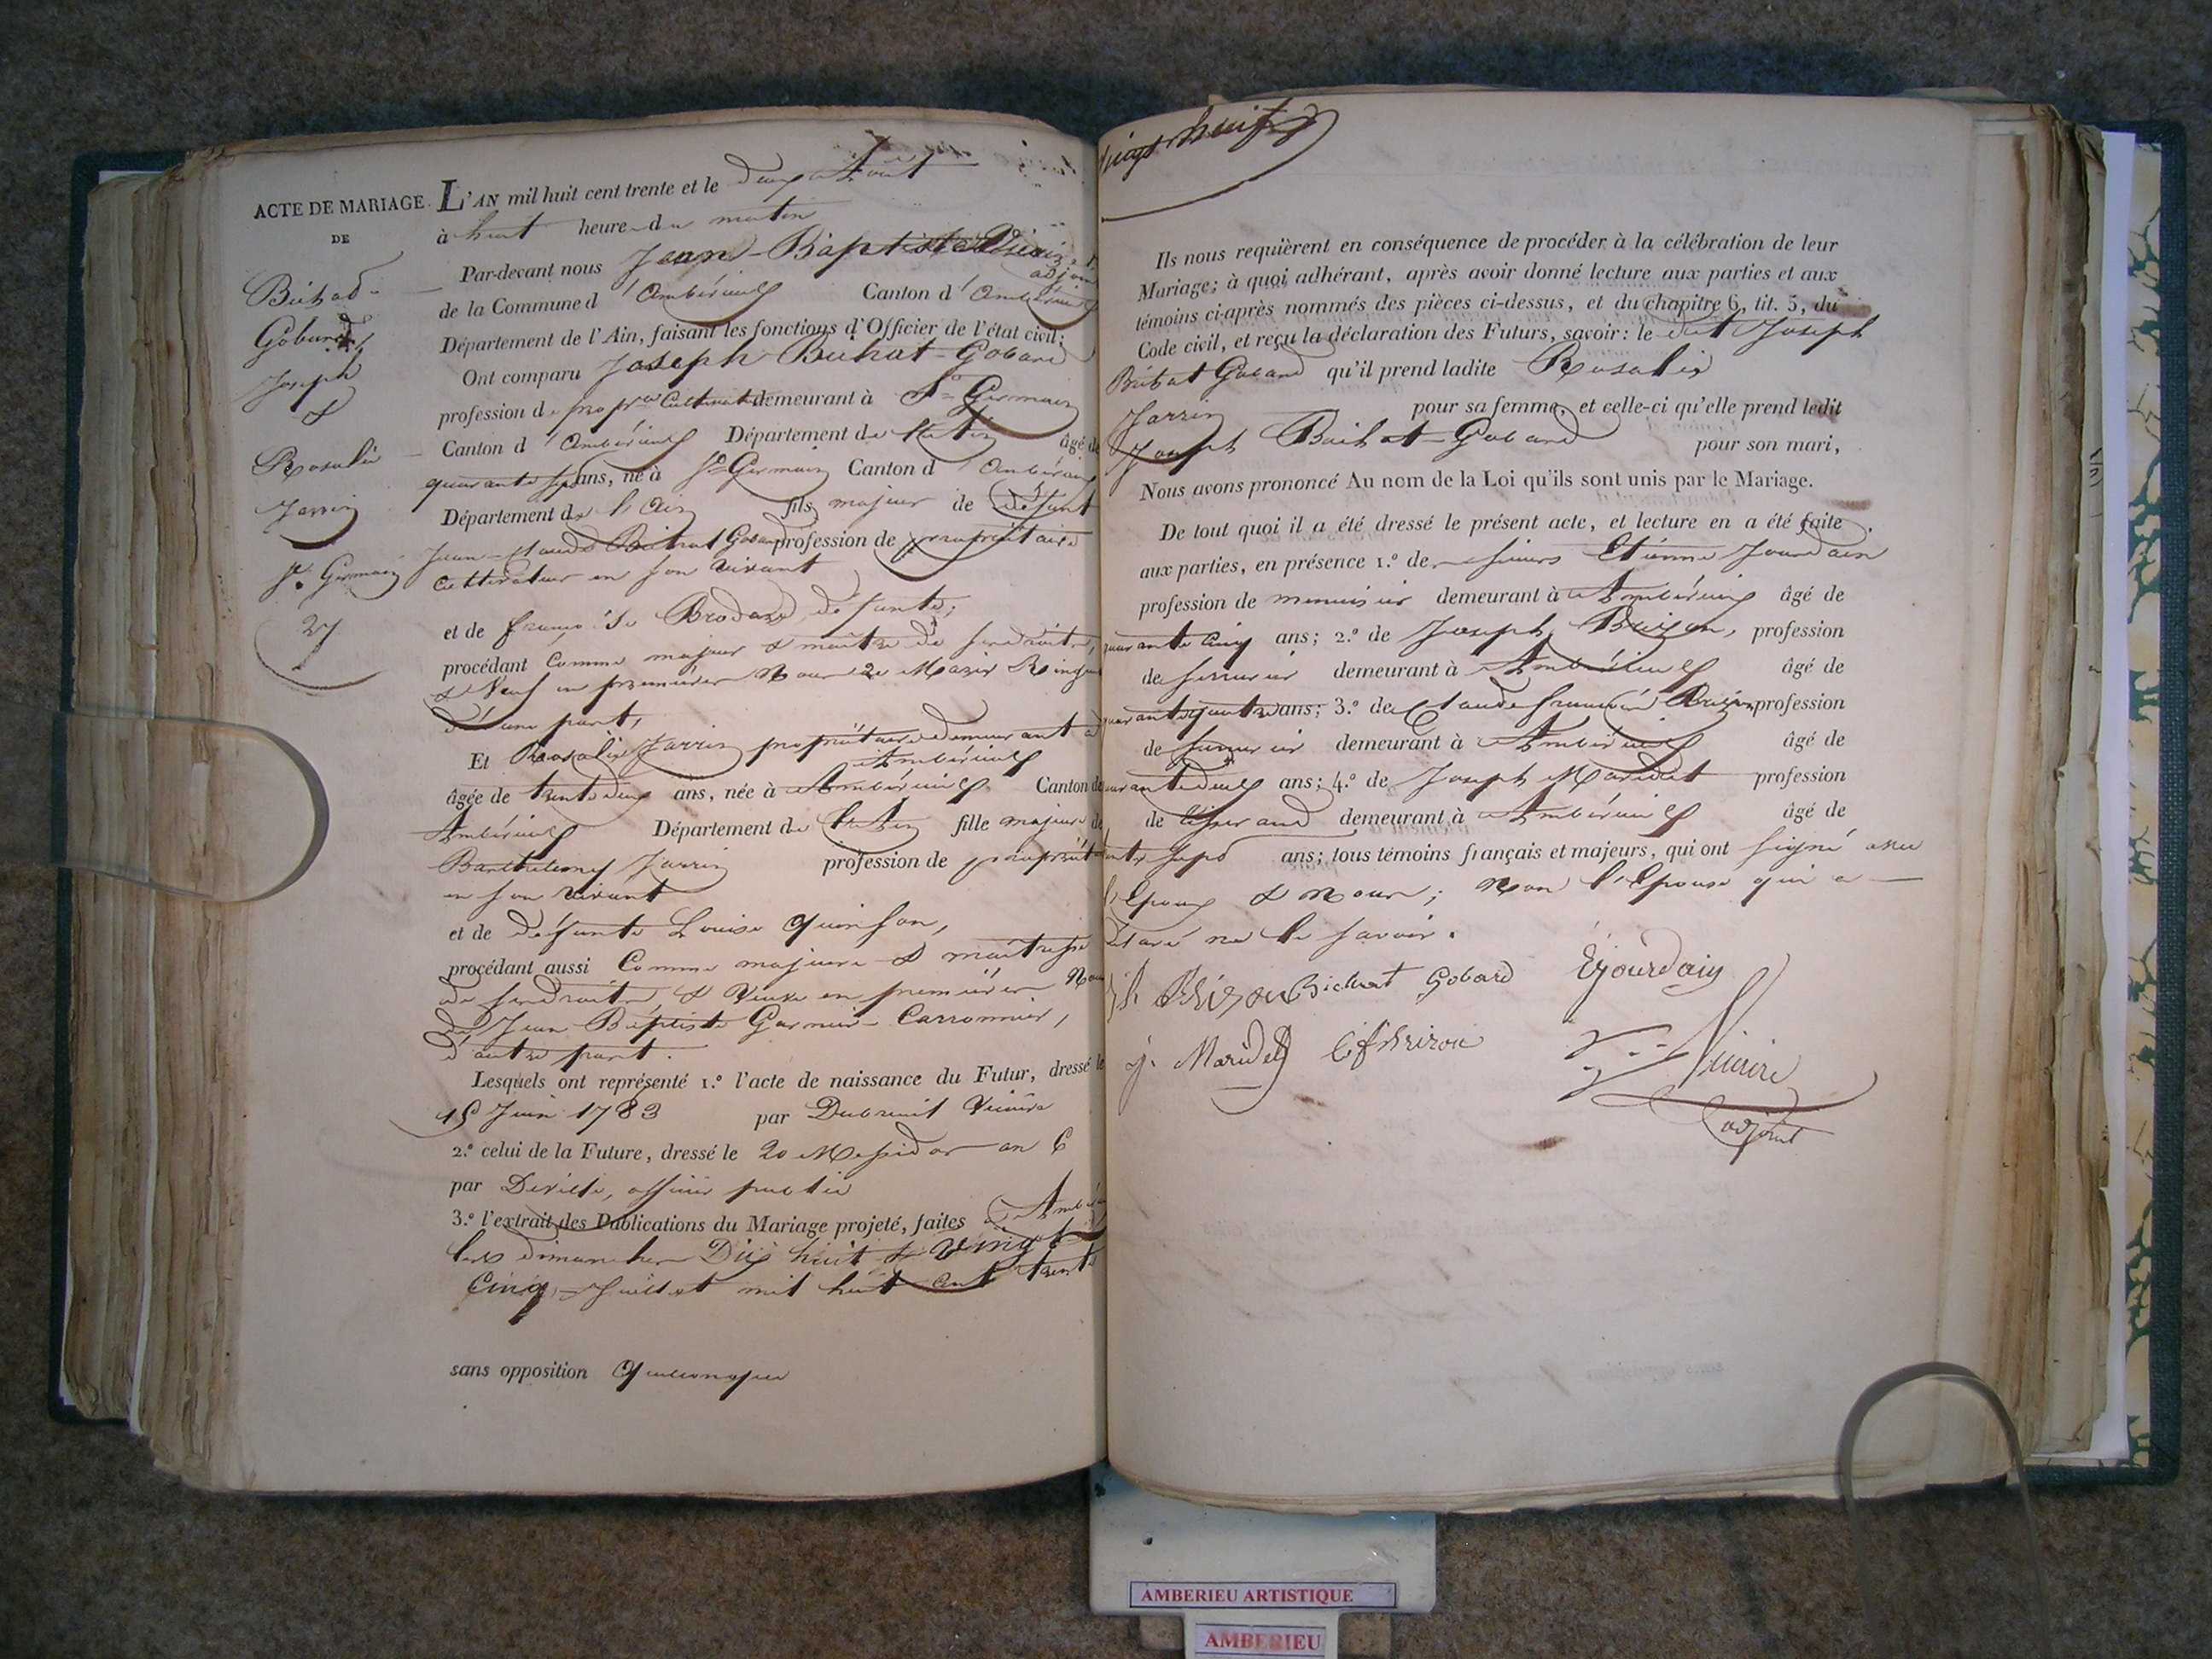 ACTE DE MARIAGE
DE
Bichat
Gobard
Joseph
&
Rosalie
Jarrin
St. Germain
27
L'AN mil huit cent trente et le deux Aout
à huit heure du matin
Par-devant nous Jean-Baptiste Vicaire
adjoint
de la Commune d'Ambérieux Canton d'Ambérieux
Département de l'Ain, faisant les fonctions d'Officier de l'état civil;
Ont comparu Joseph Bichat-Gobard
profession de propre Cultivateur demeurant à St Germain
Canton d'Ambérieux Département de l'Ain âgé de
quarante sept ans, né à St Germain Canton d'Ambérieux
Département de l'Ain fils majeur de défunt
Jean-Claude Bichat Gobard profession de propriétaire
Cultivateur en son vivant
et de françoise Brodard défunte;
procédant Comme majeur & maître de ses droits,
& Veuf en premières Noces de Marie
d'une part,
Et Rosalie Jarrin propriétaire demeurant à
Ambérieux
âgée de trente deux ans, née à Ambérieux Canton de
Ambérieux Département de l'Ain fille majeure de
Barthelemy Jarrin profession de
en son vivant
et de défunte Louise Quinson,
procédant aussi Comme majeure & maîtresse
de ses droits, & Veuve en premières
de Jean Baptiste Garnier-Carronnier,
d'autre part.
Lesquels ont représenté 1.º l'acte de naissance du Futur, dressé le
15 Juin 1783 par Dubreuil Vicaire
2.º celui de la Future, dressé le 20 Messidor an 6
par officier public
3.º l'extrait des Publications du Mariage projeté, faites à
les dimanches Dix huit & Vingt
Cinq Juillet mil huit cent trente
sans opposition Quelconque
vingt huit
Ils nous requièrent en conséquence de procéder à la célébration de leur
Mariage; à quoi adhérant, après avoir donné lecture aux parties et aux
témoins ci-après nommés des pièces ci-dessus, et du chapitre 6, tit. 5, du
Code civil, et reçu la déclaration des Futurs, savoir: le dit Joseph
Bichat Gobard qu'il prend ladite Rosalie
Jarrin pour sa femme, et celle-ci qu'elle prend ledit
Joseph Bichat-Gobard pour son mari,
Nous avons prononcé Au nom de la Loi qu'ils sont unis par le Mariage.
De tout quoi il a été dressé le présent acte, et lecture en a été faite
aux parties, en présence 1.º de sieurs Etienne Jourdain
profession de menuisier demeurant à Ambérieux âgé de
quarante cinq ans; 2.º de Joseph Brizon, profession
de serrurier demeurant à Ambérieux âgé de
quarante quatre ans; 3.º de Claude francois Brizon profession
de serrurier demeurant à Ambérieux âgé de
quarante deux ans; 4.º de Joseph Maridet profession
de tisserand demeurant à Ambérieux âgé de
sept ans; tous témoins français et majeurs, qui ont signé avec
l'Epoux & nous; Non l'Epouse qui a
déclaré ne le savoir.
Brizon Bichat Gobard E Jourdain
j. Maridet C f Brizon Vicaire
adjoint
AMBERIEU ARTISTIQUE
AMBERIEU